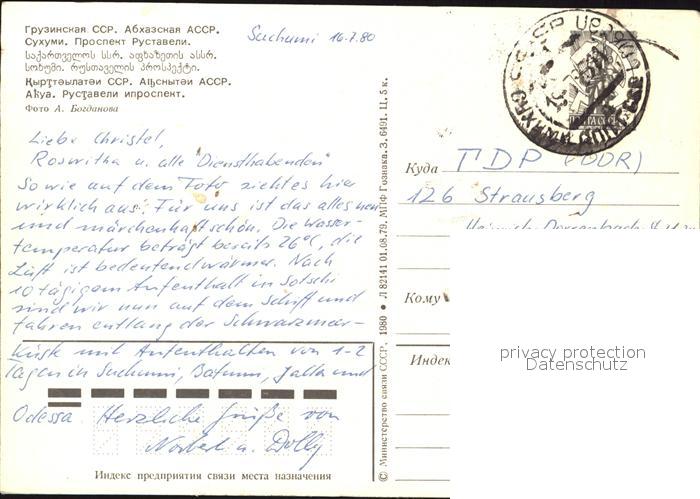 Грузинская ССР. Абхазская АССР.
Сухуми. Проспект Руставели.
საქართველოს სსრ. აფხაზეთის ასსრ.
სოხუმი. რუსთაველის პროსპექტი.
Қырҭтәылатәи ССР. Аԥснытәи АССР.
Аҟуа. Русҭавели ипроспект.
Фото А. Богданова
Suchumi 16.7.80
Liebe Christel,
Roswitha u. alle "Diensthabenden"
So wie auf dem Foto sieht es hier
wirklich aus. Für uns ist das alles neu
und märchenhaft schön. Die Wasser-
temperatur beträgt bereits 26°C, die
Luft ist bedeutend wärmer. Nach
10 tägigem Aufenthalt in Sotschi
sind wir nun auf dem Schiff und
fahren entlang der Schwarzmeer-
küste mit Aufenthalten von 1-2
Tagen in Suchumi, Batumi, Jalta und
Odessa. Herzliche Grüße von
Norbert u. Dolly
Индекс предприятия связи места назначения
© Министерство связи СССР. 1980 • Л 82141 01.08.79. МПФ Гознака. З. 6491. Ц. 5 к.
ПОЧТА СССР
Куда ГДР (DDR)
126 Strausberg
Кому
Индек
privacy protection
Datenschutz